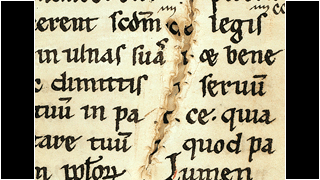 erent scdm legis
in ulnas suā & bene
dimittis seruū
tuū in pa ce. quia
tare tuū quod pa
lumen